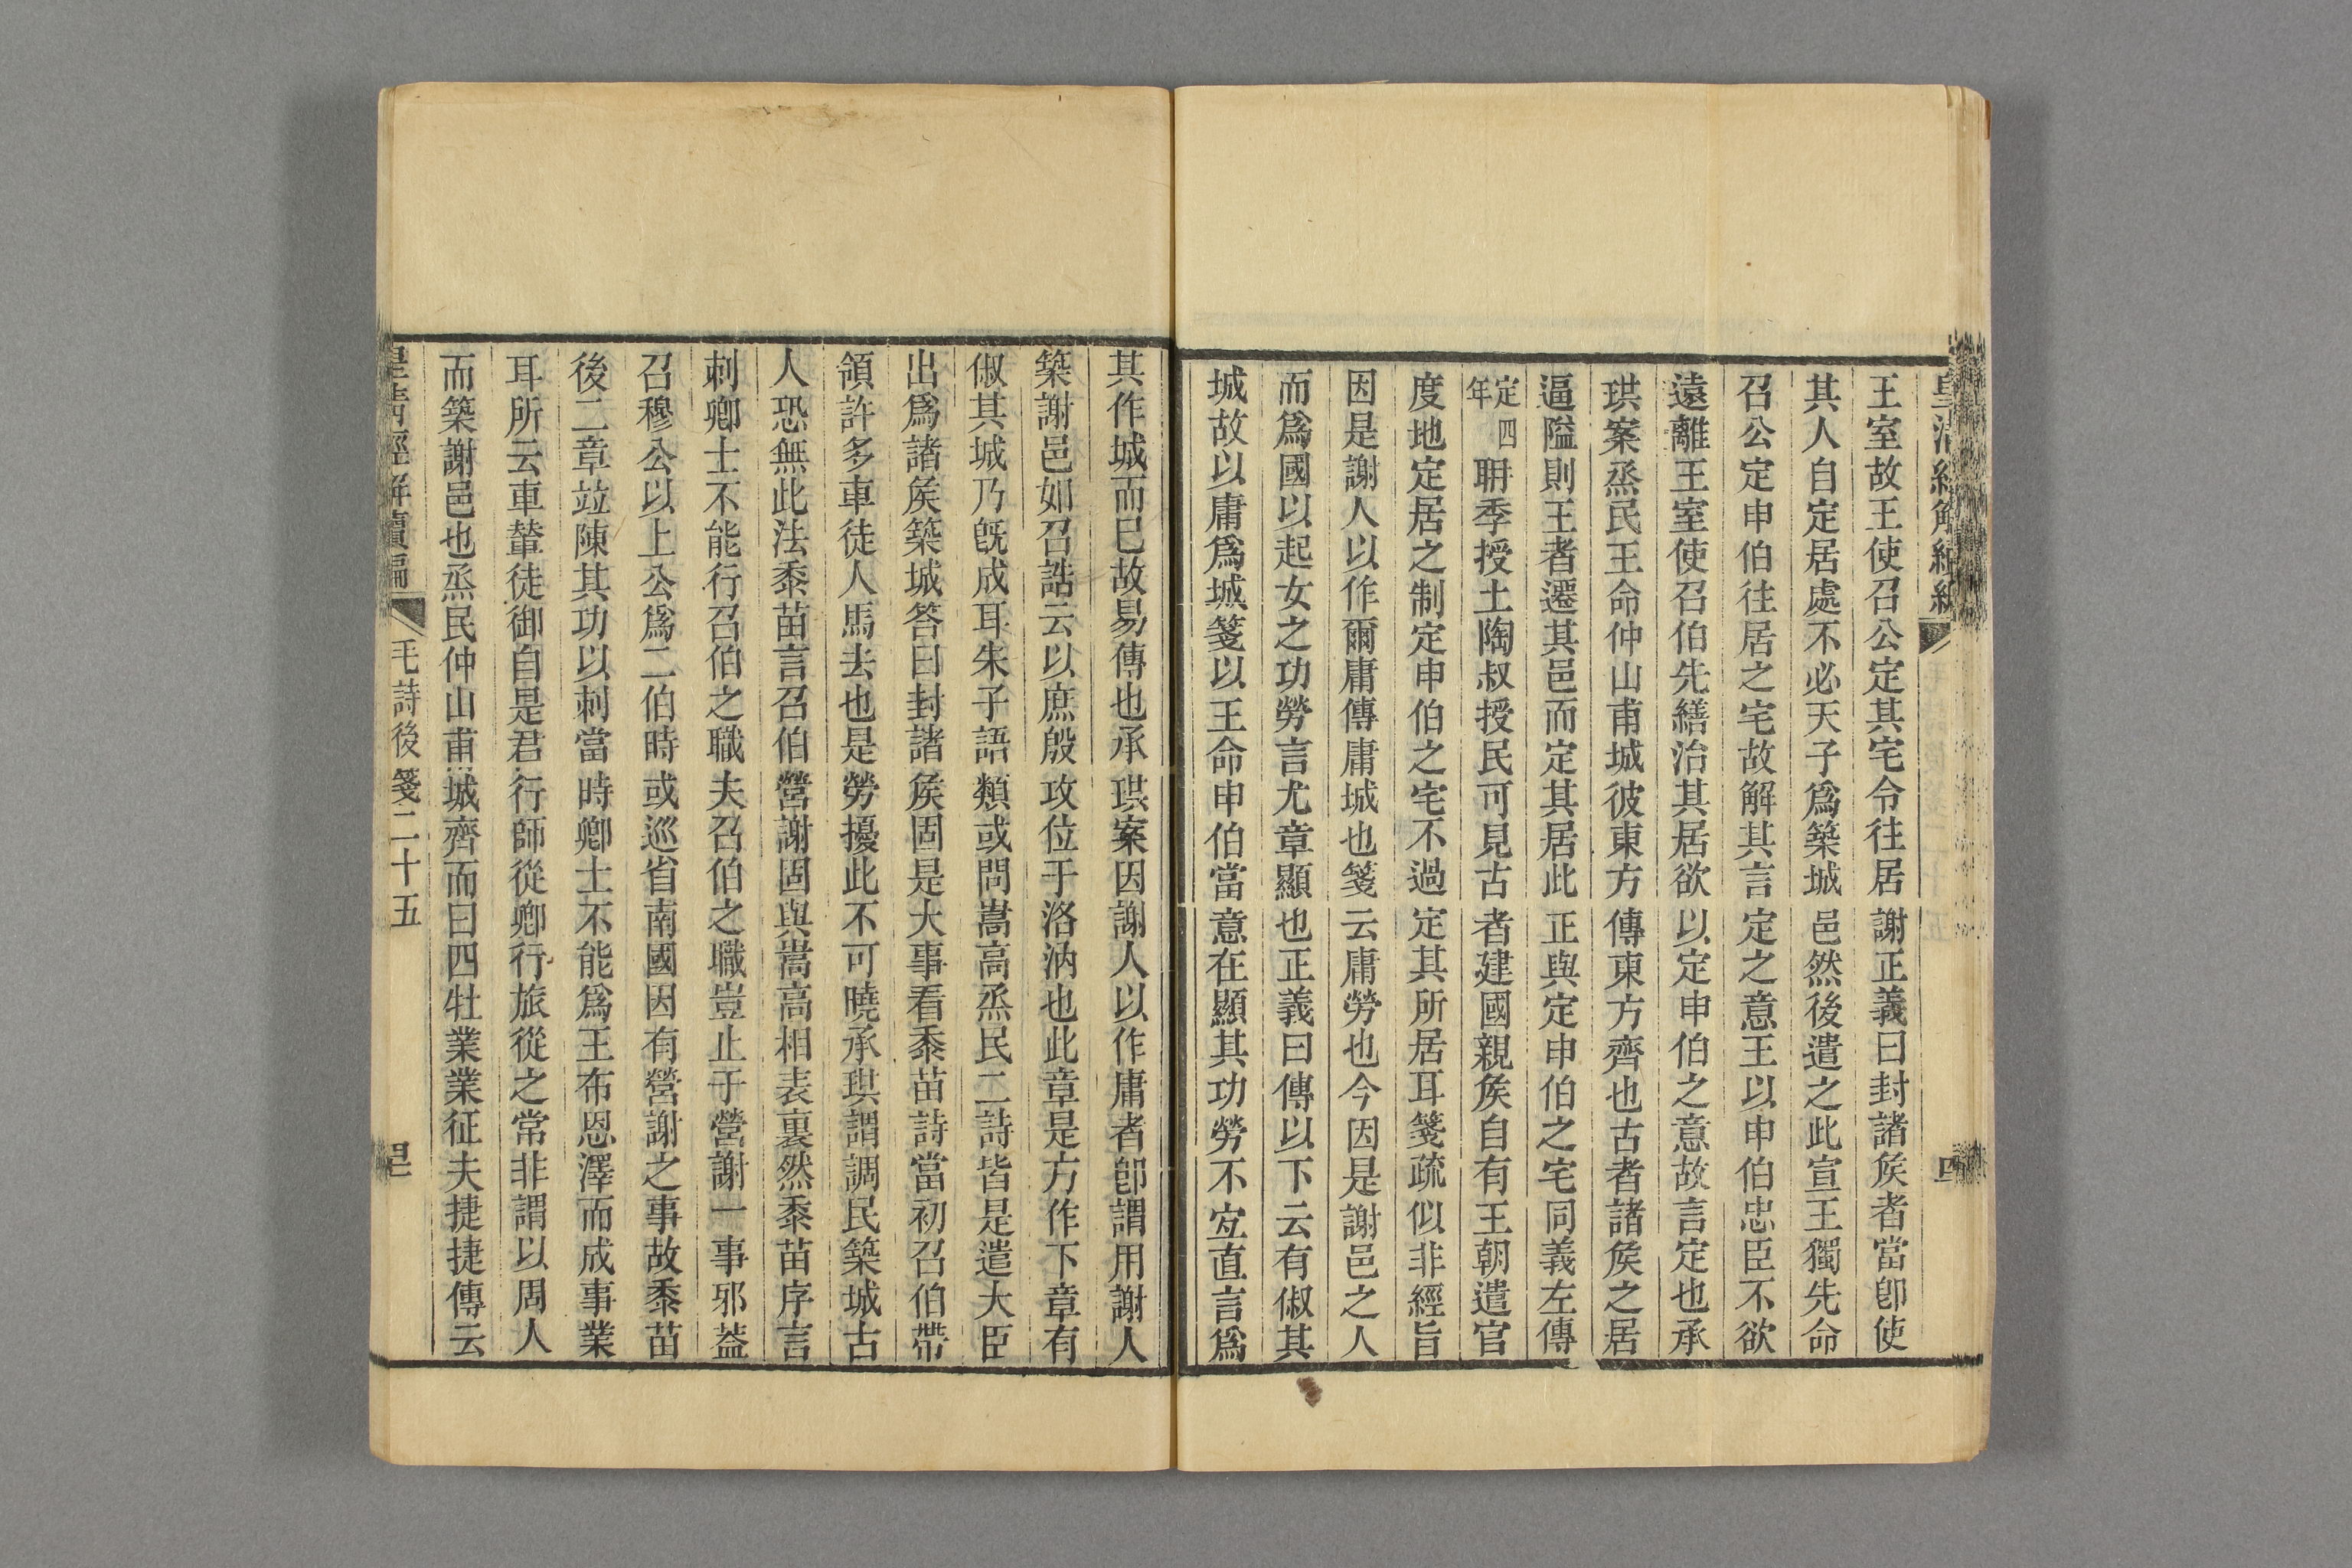 王室故王使召公定其宅令往居謝正義曰封諸矦者當卽使
其人自定居處不必天子爲築城邑然後遣之此宣王獨先命
召公定申伯往居之宅故解其言定之意王以申伯忠臣不欲
遠離王室使召伯先繕治其居欲以定申伯之意故言定也承
珙案烝民王命仲山甫城彼東方傳東方齊也古者諸矦之居
逼隘則王者遷其邑而定其居此正與定申伯之宅同義左傳
定四年 聃季授土陶叔授民可見古者建國親矦自有王朝遣官
度地定居之制定申伯之宅不過定其所居耳箋疏似非經旨
因是謝人以作爾庸傳庸城也箋云庸勞也今因是謝邑之人
而爲國以起女之功勞言尤章顯也正義曰傳以下云有俶其
城故以庸爲城箋以王命申伯當意在顯其功勞不宐直言爲
其作城而已故易傳也承珙案因謝人以作庸者卽謂用謝人
築謝邑如召誥云以庶殷攻位于洛汭也此章是方作下章有
俶其城乃旣成耳朱子語類或問嵩高烝民二詩皆是遣大臣
出爲諸矦築城答曰封諸矦固是大事看黍苗詩當初召伯帶
領許多車徒人馬去也是勞擾此不可曉承珙謂調民築城古
人恐無此法黍苗言召伯營謝固與嵩高相表裏然黍苗序言
刺卿士不能行召伯之職夫召伯之職豈止于營謝一事邪葢
召穆公以上公爲二伯時或巡省南國因有營謝之事故黍苗
後二章竝陳其功以刺當時卿士不能爲王布恩澤而成事業
耳所云車輦徒御自是君行師從卿行旅從之常非謂以周人
而築謝邑也烝民仲山甫城齊而曰四牡業業征夫捷捷傳云
皇淸經解續編 毛詩後箋二十五